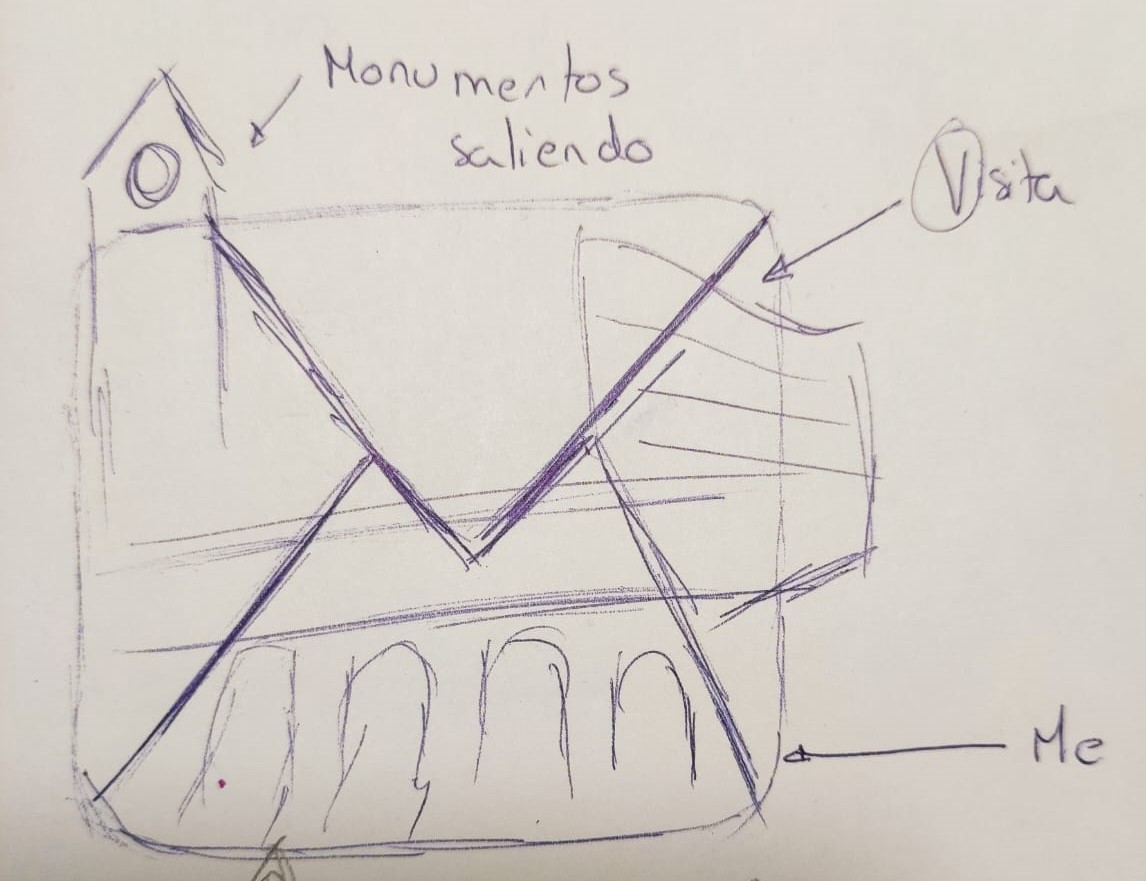 Monumentos
saliendo
Visita
Me